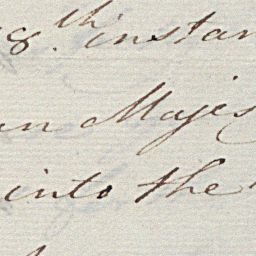 8th instan
an Majes
into the